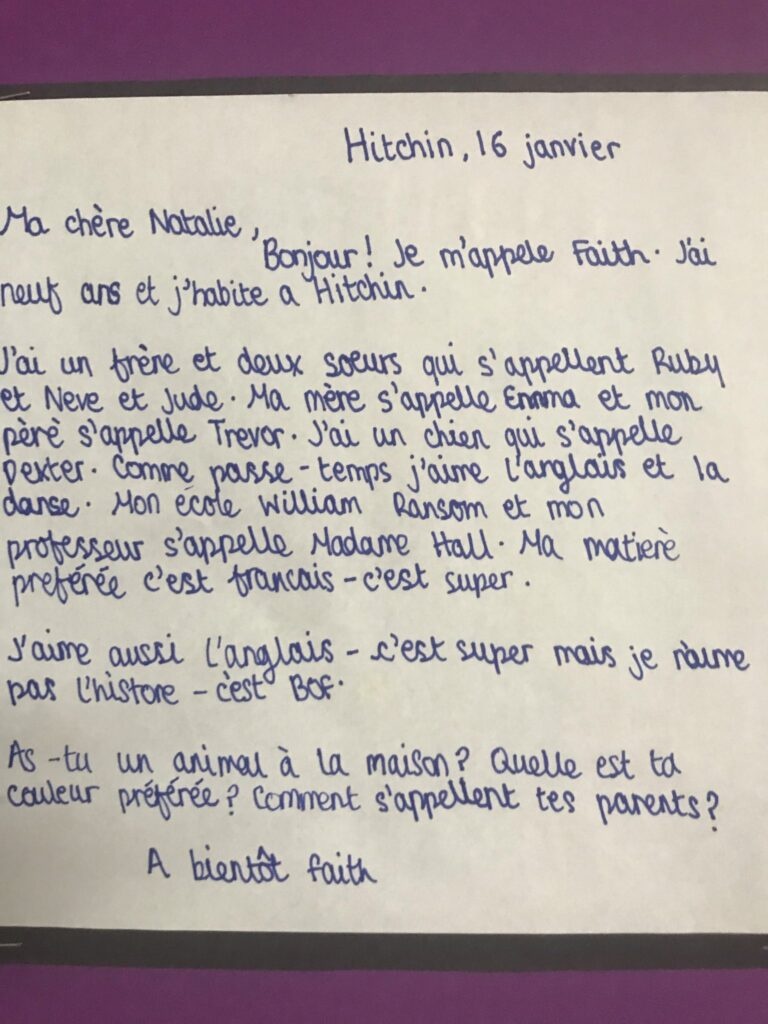 Hitchin, 16 janvier
Ma chère Natalie,
Bonjour! Je m'appele Faith. J'ai
neuf ans et j'habite a Hitchin.
J'ai un frère et deux soeurs qui s'appellent Ruby
et Neve et Jude. Ma mère s'appelle Emma et mon
pèrè s'appelle Trevor. J'ai un chien qui s'appelle
Dexter. Comme passe-temps j'aime l'anglais et la
danse. Mon école William Ransom et mon
professeur s'appelle Madame Hall. Ma matierè
preférée c'est francais - c'est super.
J'aime aussi l'anglais - c'est super mais je n'aime
pas l'histore - c'est BOF.
As-tu un animal à la maison? Quelle est ta
couleur préférée? Comment s'appellent tes parents?
A bientôt faith